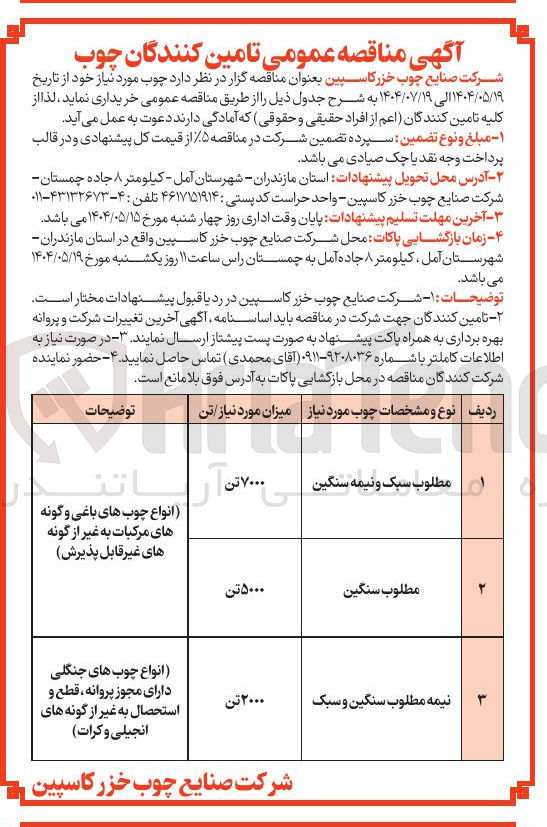 آگهی مناقصه عمومی تامین کنندگان چوب
شرکت صنایع چوب خزر کاسپین بعنوان مناقصه گزار در نظر دارد چوب مورد نیاز خود از تاریخ
۱۴۰۴/۰۵/۱۹ الی ۱۴۰۴/۰۷/۱۹ به شرح جدول ذیل را از طریق مناقصه عمومی خریداری نماید، لذا از
کلیه تامین کنندگان (اعم از افراد حقیقی و حقوقی) که آمادگی دارند دعوت به عمل می آید.
۱-مبلغ و نوع تضمین: سپرده تضمین شرکت در مناقصه ۵٪ از قیمت کل پیشنهادی و در قالب
پرداخت وجه نقد یا چک صیادی می باشد.
۲-آدرس محل تحویل پیشنهادات: استان مازندران- شهرستان آمل - کیلومتر ۸ جاده چمستان-
شرکت صنایع چوب خزر کاسپین- واحد حراست کدپستی: ۴۶۱۷۱۵۱۹۱۴ تلفن: ۴-۴۳۱۳۲۶۷۳-۰۱۱
۳-آخرین مهلت تسلیم پیشنهادات: پایان وقت اداری روز چهار شنبه مورخ ۱۴۰۴/۰۵/۱۵ می باشد.
۴-زمان بازگشایی پاکات: محل شرکت صنایع چوب خزر کاسپین واقع در استان مازندران-
شهرستان آمل، کیلومتر ۸ جاده آمل به چمستان راس ساعت ۱۱ روز یکشنبه مورخ ۱۴۰۴/۰۵/۱۹
می باشد.
توضیحات: ۱-شرکت صنایع چوب خزر کاسپین در رد یا قبول پیشنهادات مختار است.
۲-تامین کنندگان جهت شرکت در مناقصه باید اساسنامه، آگهی آخرین تغییرات شرکت و پروانه
بهره برداری به همراه پاکت پیشنهاد به صورت پست پیشتاز ارسال نمایند. ۳-در صورت نیاز به
اطلاعات کاملتر با شماره ۹۲۰۸۰۳۶-۰۹۱۱ (آقای محمدی) تماس حاصل نمایید. ۴-حضور نماینده
شرکت کنندگان مناقصه در محل بازگشایی پاکات به آدرس فوق بلامانع است.
ردیف نوع و مشخصات چوب مورد نیاز میزان مورد نیاز/تن توضیحات
۱ مطلوب سبک و نیمه سنگین ۷۰۰۰ تن
(انواع چوب های باغی و گونه
های مرکبات به غیر از گونه
های غیرقابل پذیرش)
۲ مطلوب سنگین ۵۰۰۰ تن
۳ نیمه مطلوب سنگین و سبک ۲۰۰۰ تن
(انواع چوب های جنگلی
دارای مجوز پروانه، قطع و
استحصال به غیر از گونه های
انجیلی و کرات)
شرکت صنایع چوب خزر کاسپین